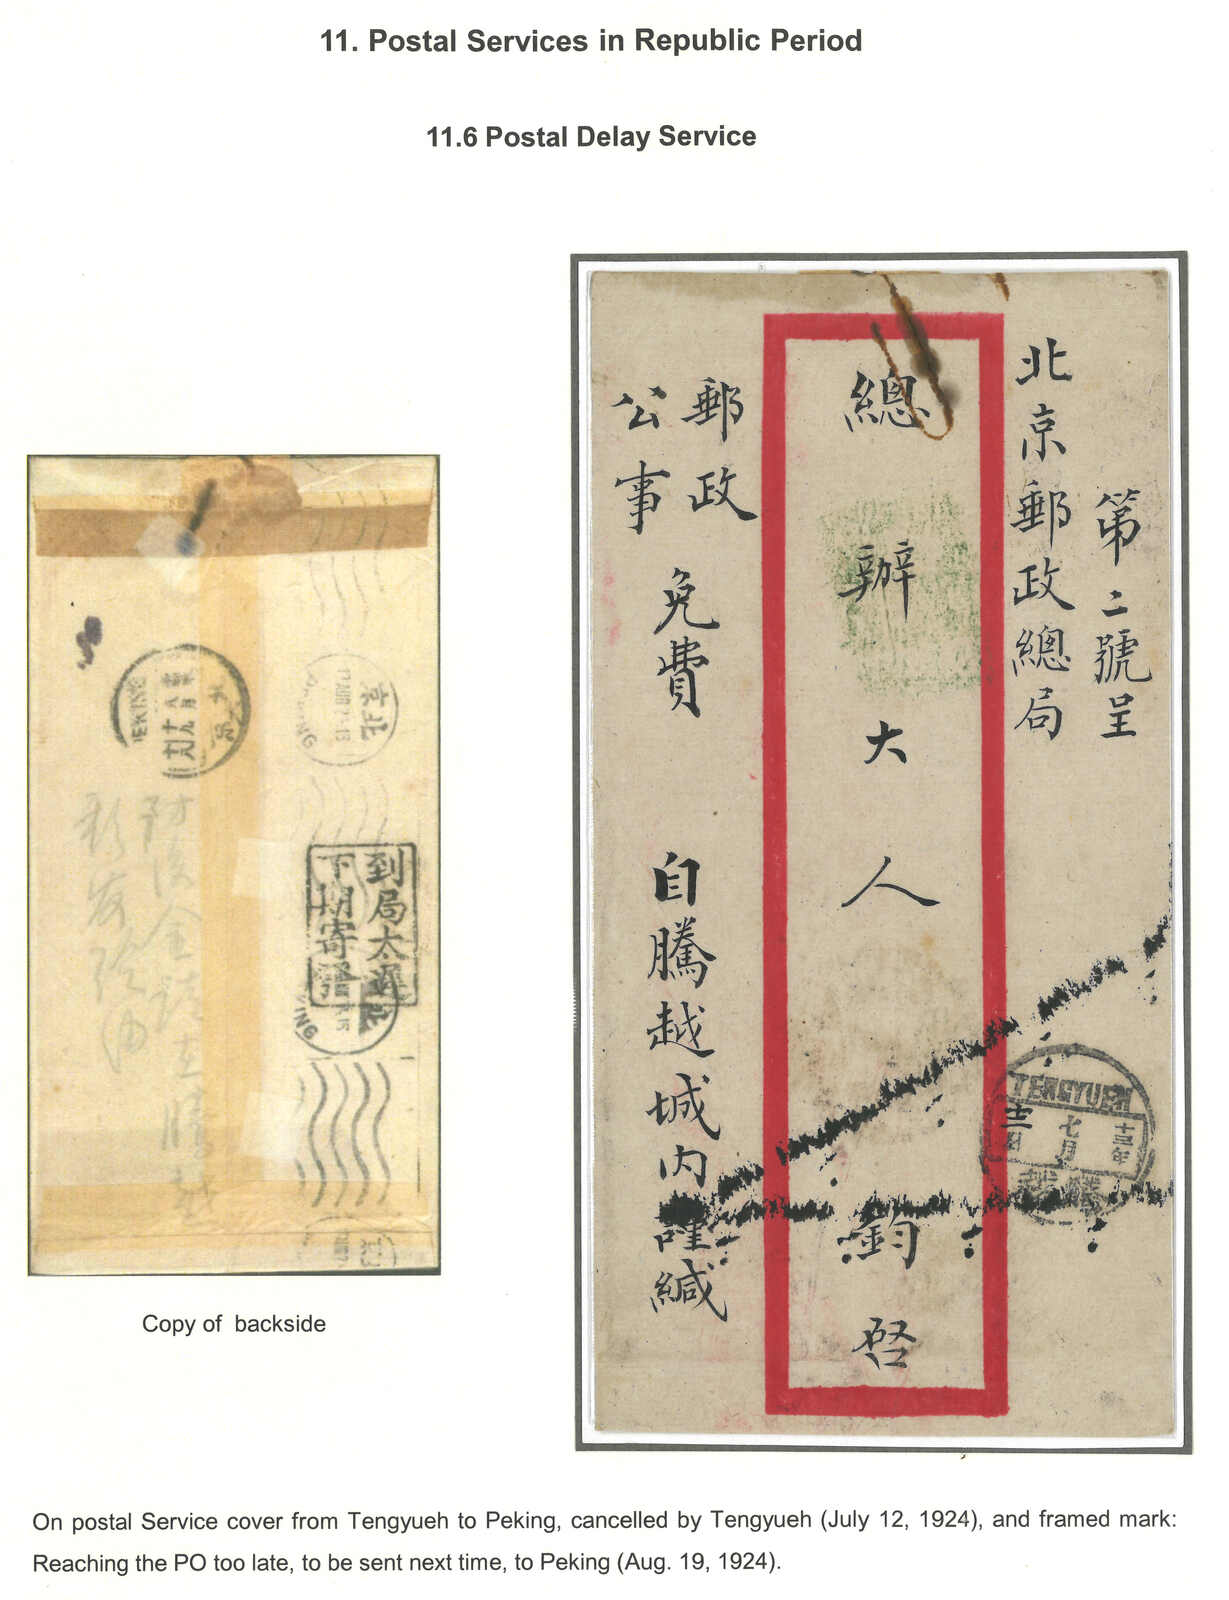 11. Postal Services in Republic Period
11.6 Postal Delay Service
第二號呈
北京郵政總局
總辦大人鈞啓
郵政
公事
免費
自騰越城內謹緘
TENGYUEH
十三年
七月
十二日
騰越
PEKING
北京
到局太遲
下期寄發
PEKING
Copy of backside
On postal Service cover from Tengyueh to Peking, cancelled by Tengyueh (July 12, 1924), and framed mark:
Reaching the PO too late, to be sent next time, to Peking (Aug. 19, 1924).